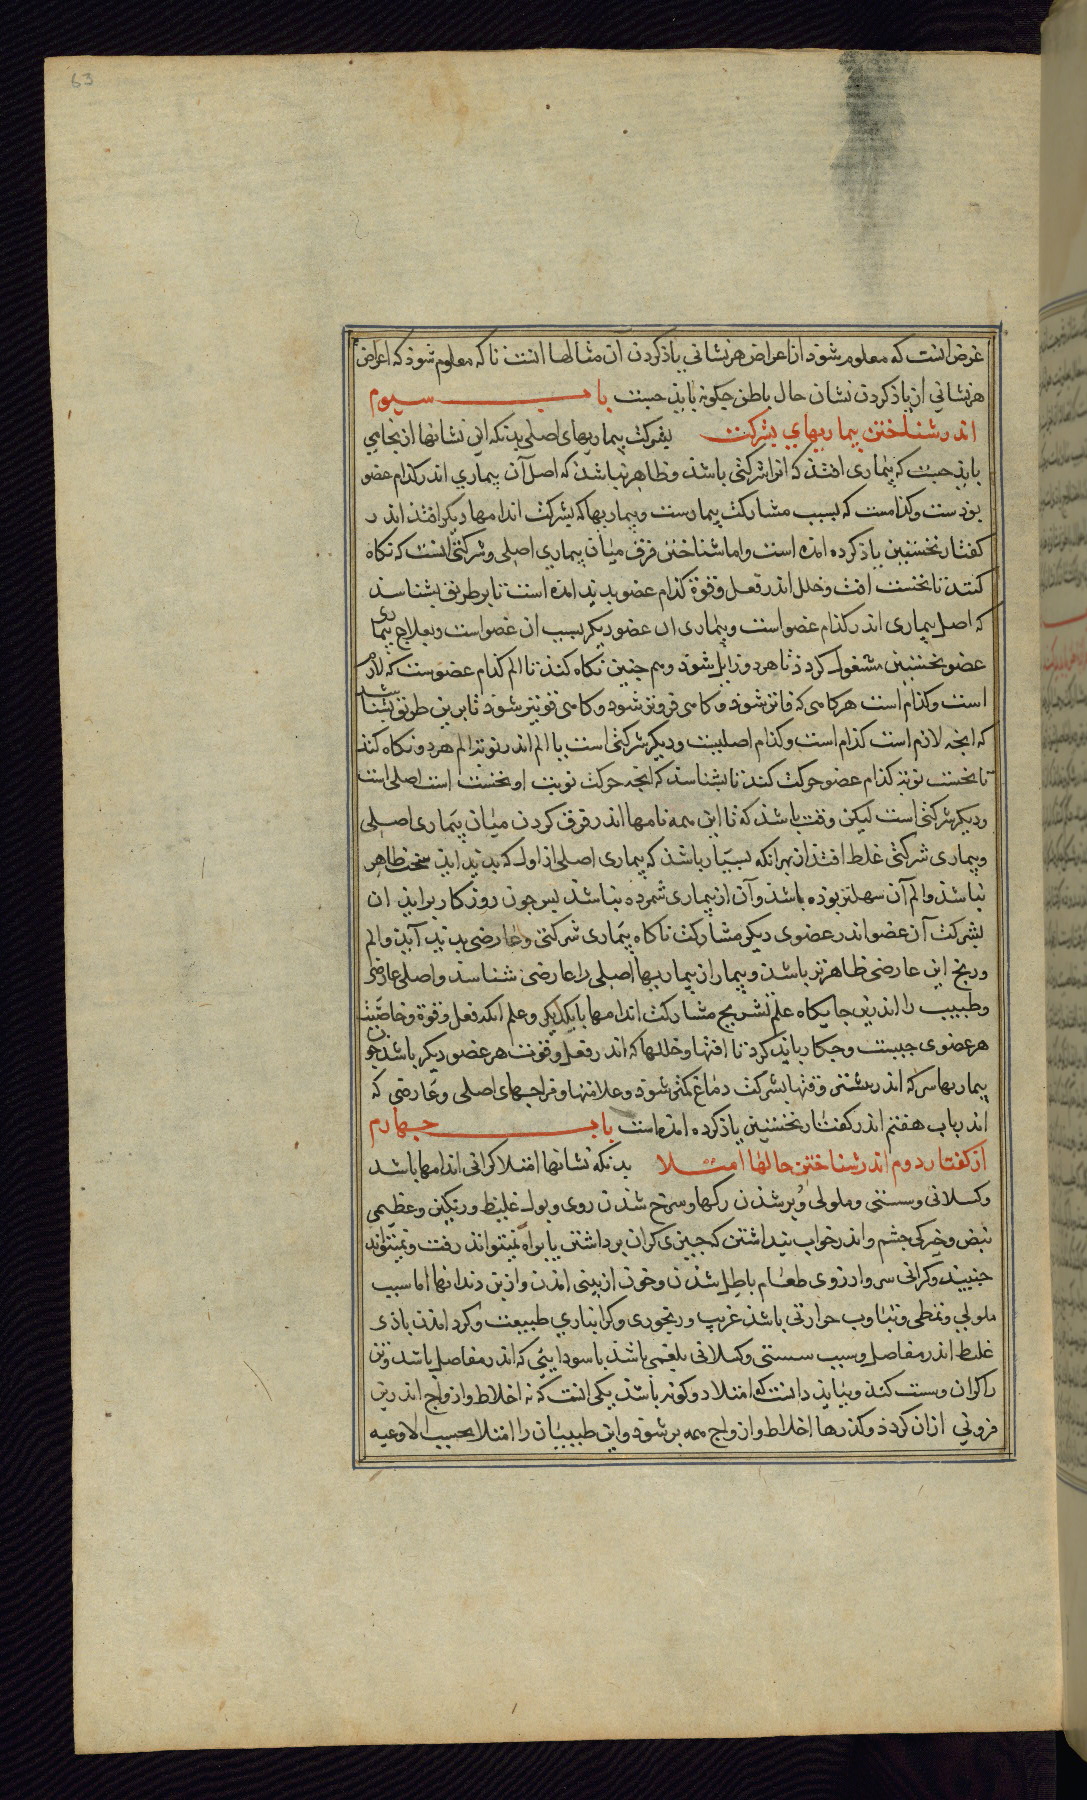 63
غرض انست که معلوم شود از اعراض هر نشانی یاذ کردن آن مثالها انست تا که معلوم شوذ که اعراض
هر نشانی از یاذ کردن نشان حال باطن چکونه بایذ جست باب سیوم
اندر شناختن بیماریهای بشرکت بشرکت بیماریهای اصلی بدانکه این نشانها از بجایی
بایذ جست که بیماری افتذ که انرا شرکتی باشذ وظاهر نباشذ که اصل آن بیماری اندر کذام عضو
بوذست وکذامست که بسبب مشارکت بیمارست وبیماریها که بشرکت اندامها دیکر افتذ اندر
کفتار نخستین یاذ کرده امذه است واما شناختن فرق میان بیماری اصلی وشرکتی انست که نکاه
کنند تا نخست افت وخلل اندر فعل وقوة کذام عضو بدید امذه است تا بر طریق بشناسند
که اصل بیماری اندر کذام عضو است وبیماری ان عضو دیکر بسبب ان عضو است وبعلاج بیماری
عضو نخستین مشغول کردذ تا هر دو زایل شوذ وهم جنین نکاه کنند تا الم کذام عضوست که لازم
است وکذام است هر کاهی که فاتر شوذ وکاهی فروتر شود وکاهی قویتر شوذ تا برین طریق بشناسد
که انجه لازم است کذام است وکذام اصلیست ودیکر شرکتی است یا الم اندر نوبتها الم هر دو نکاه کند
تا نخست نوبه کذام عضو حرکت کند تا بشناسد که انجه حرکت نوبت او نخست است اصلی است
ودیکر شرکتی است لیکن وقت باشذ که تا این همه نامها اندر فرق کردن میان بیماری اصلی
وبیماری شرکتی غلط افتذ از بهر انکه بسیار باشذ که بیماری اصلی از اول که بدید اید سخت ظاهر
نباشذ والم آن سهلتر بوذه باشذ وآن از بیماری شمرده نباشذ بس جون روزکار برایذ ان
بشرکت آن عضو اندر عضوی دیکر مشارکت ناکاه بیماری شرکتی وعارضی بدید آید والم
ورنج این عارضی ظاهرتر باشذ وبیماران بیماریها اصلی را عارضی شناسند واصلی عارضی
وطبیب را اندرین جایکاه علم تشریح مشارکت اندامها با یکدیکر وعلم انکه فعل وقوة وخاصیت
هر عضوی جیست وجکار باید کرد تا افتها وخللها که اندر فعل وقوت هر عضو دیکر باشذ جون
بیماریها سر که اندر بیشتر وقتها بشرکت دماغ کمتر شوذ وعلامتها ومزاجهای اصلی وعارضی که
اندر باب هفتم اندر کفتار نخستین یاذ کرده امذه است باب جهارم
از کفتار دوم اندر شناختن حالها امتلا بدانکه نشانها امتلا کرانی اندامها باشد
وکسلانی وسستی وملولی وبر شذن رکها وسرخ شذن روی وبول غلیظ ورنکین وعظیمی
نبض وخیرکی جشم واندر خواب بنداشتن که جیزی کران برداشتن یا براه نمیتواند رفت ونمیتواند
جنبید وکرانی سر وارزوی طعام باطل شذن وخون از بینی امذن واز بن دندانها اما سبب
ملولی وتمطی وتثاوب حرارتی باشذ غریب ورنجوری وکرانباری طبیعت وکرد امذن باذی
غلیظ اندر مفاصل وسبب سستی وکسلانی بلغمی باشذ یا سودایی که اندر مفاصل باشد وتن
را کران وسست کند وبباید دانست که امتلا دو کونه باشذ یکی انست که نه اخلاط وارواح اندر تن
فزونی ازان کردذ وکذرها اخلاط وارواح همه بر شود واین طبیبان را امتلا بحسب الاوعیه